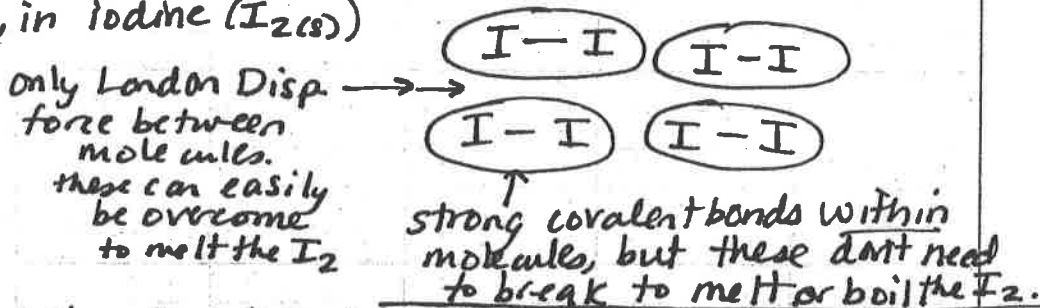 , in iodine (I₂(s))
I — I
I - I
only London Disp. →→
force between
molecules.
these can easily
be overcome
to melt the I₂
I - I
I - I
strong covalent bonds within
molecules, but these don't need
to break to melt or boil the I₂.